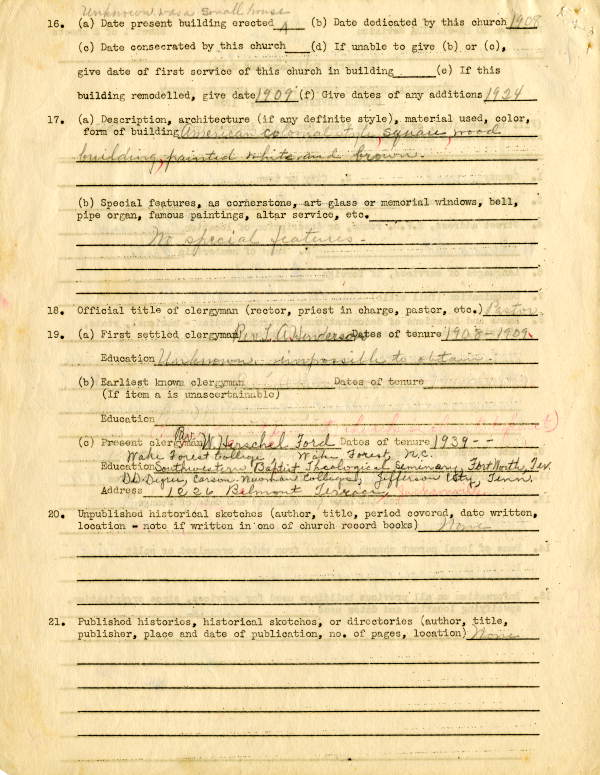 Unknown was a small house
16. (a) Date present building erected A (b) Date dedicated by this church 1908
(c) Date consecrated by this church (d) If unable to give (b) or (c),
give date of first service of this church in building (e) If this
building remodelled, give date 1909 (f) Give dates of any additions 1924
17. (a) Description, architecture (if any definite style), material used, color,
form of building American colonial style, square, wood
building, painted white and brown.
(b) Special features, as cornerstone, art glass or memorial windows, bell,
pipe organ, famous paintings, altar service, etc.
No special features.
18. Official title of clergyman (rector, priest in charge, pastor, etc.) Pastor
19. (a) First settled clergyman Rev. L. A. Henderson Dates of tenure 1908-1909.
Education Unknown - impossible to obtain.
(b) Earliest known clergyman Dates of tenure
(If item a is unascertainable)
Education
(c) Present clergyman Rev. W. Herschel Ford Dates of tenure 1939--
Wake Forest College Wake Forest, N.C.
Education Southwestern Baptist Theological Seminary, Fort Worth, Tex.
D.D. Degree, Carson Newman College, Jefferson City, Tenn.
Address 1226 Belmont Terrace,
20. Unpublished historical sketches (author, title, period covered, date written,
location - note if written in one of church record books) None
21. Published histories, historical sketches, or directories (author, title,
publisher, place and date of publication, no. of pages, location) None